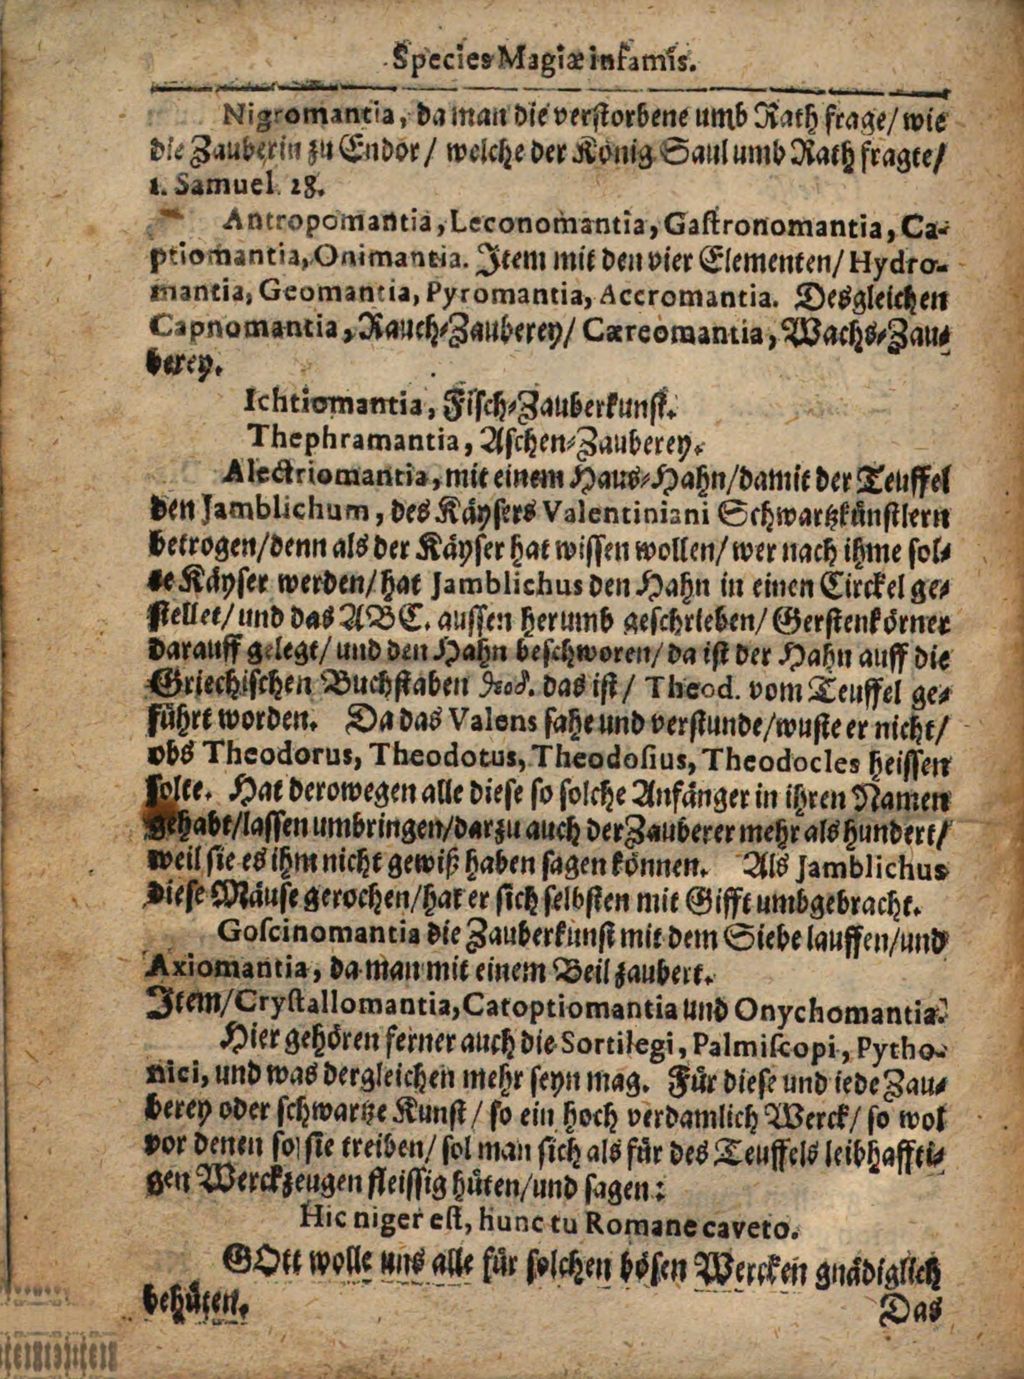 Species Magiæ infamis.
Nigromantia, da man die verstorbene umb Rath frage/ wie
die Zauberin zu Endor/ welche der König Saul umb Rath fragte/
1. Samuel. 28.
Antropomantia, Leconomantia, Gastronomantia, Ca-
ptiomantia, Onimantia. Item mit den vier Elementen/ Hydro-
mantia, Geomantia, Pyromantia, Accromantia. Desgleichen
Capnomantia, Rauch-Zauberey/ Cæreomantia, Wachs-Zau-
berey.
Ichtiomantia, Fisch-Zauberkunst.
Thephramantia, Aschen-Zauberey.
Alectriomantia, mit einem Haus-Hahn/ damit der Teuffel
den Jamblichum, des Käysers Valentiniani Schwartzkünstlern
betrogen/ denn als der Käyser hat wissen wollen/ wer nach ihme sol-
te Käyser werden/ hat Jamblichus den Hahn in einen Circkel ge-
stellet/ und das ABC. aussen herumb geschrieben/ Gerstenkörner
darauff gelegt/ und den Hahn beschworen/ da ist der Hahn auff die
Griechischen Buchstaben θεοδ. das ist/ Theod. vom Teuffel ge-
führt worden. Da das Valens sahe und verstunde/ wuste er nicht/
obs Theodorus, Theodotus, Theodosius, Theodocles heissen
solte. Hat derowegen alle diese so solche Anfänger in ihren Namen
gehabt/ lassen umbringen/ darzu auch der Zauberer mehr als hundert/
weil sie es ihm nicht gewiß haben sagen können. Als Jamblichus
diese Mäuse gerochen/ hat er sich selbsten mit Gifft umbgebracht.
Goscinomantia die Zauberkunst mit dem Siebe lauffen/ und
Axiomantia, da man mit einem Beil zaubert.
Item/ Crystallomantia, Catoptiomantia und Onychomantia.
Hier gehören ferner auch die Sortilegi, Palmiscopi, Pytho-
nici, und was dergleichen mehr seyn mag. Für diese und iede Zau-
berey oder schwartze Kunst/ so ein hoch verdamlich Werck/ so wol
vor denen so sie treiben/ sol man sich als für des Teuffels leibhaffti-
gen Werckzeugen fleissig hüten/ und sagen:
Hic niger est, hunc tu Romane caveto.
GOtt wolle uns alle für solchen bösen Wercken gnädiglich
behüten.
Das